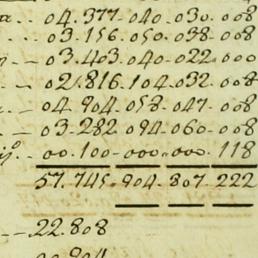 04.377-040-030-008
03.156.050.038-008
03.403.040.022.000
02.816.104.032.008
04.904-053-047.008
03.282 094-060-008
00.100-000-000.118
57.745.904.807.222
22.808